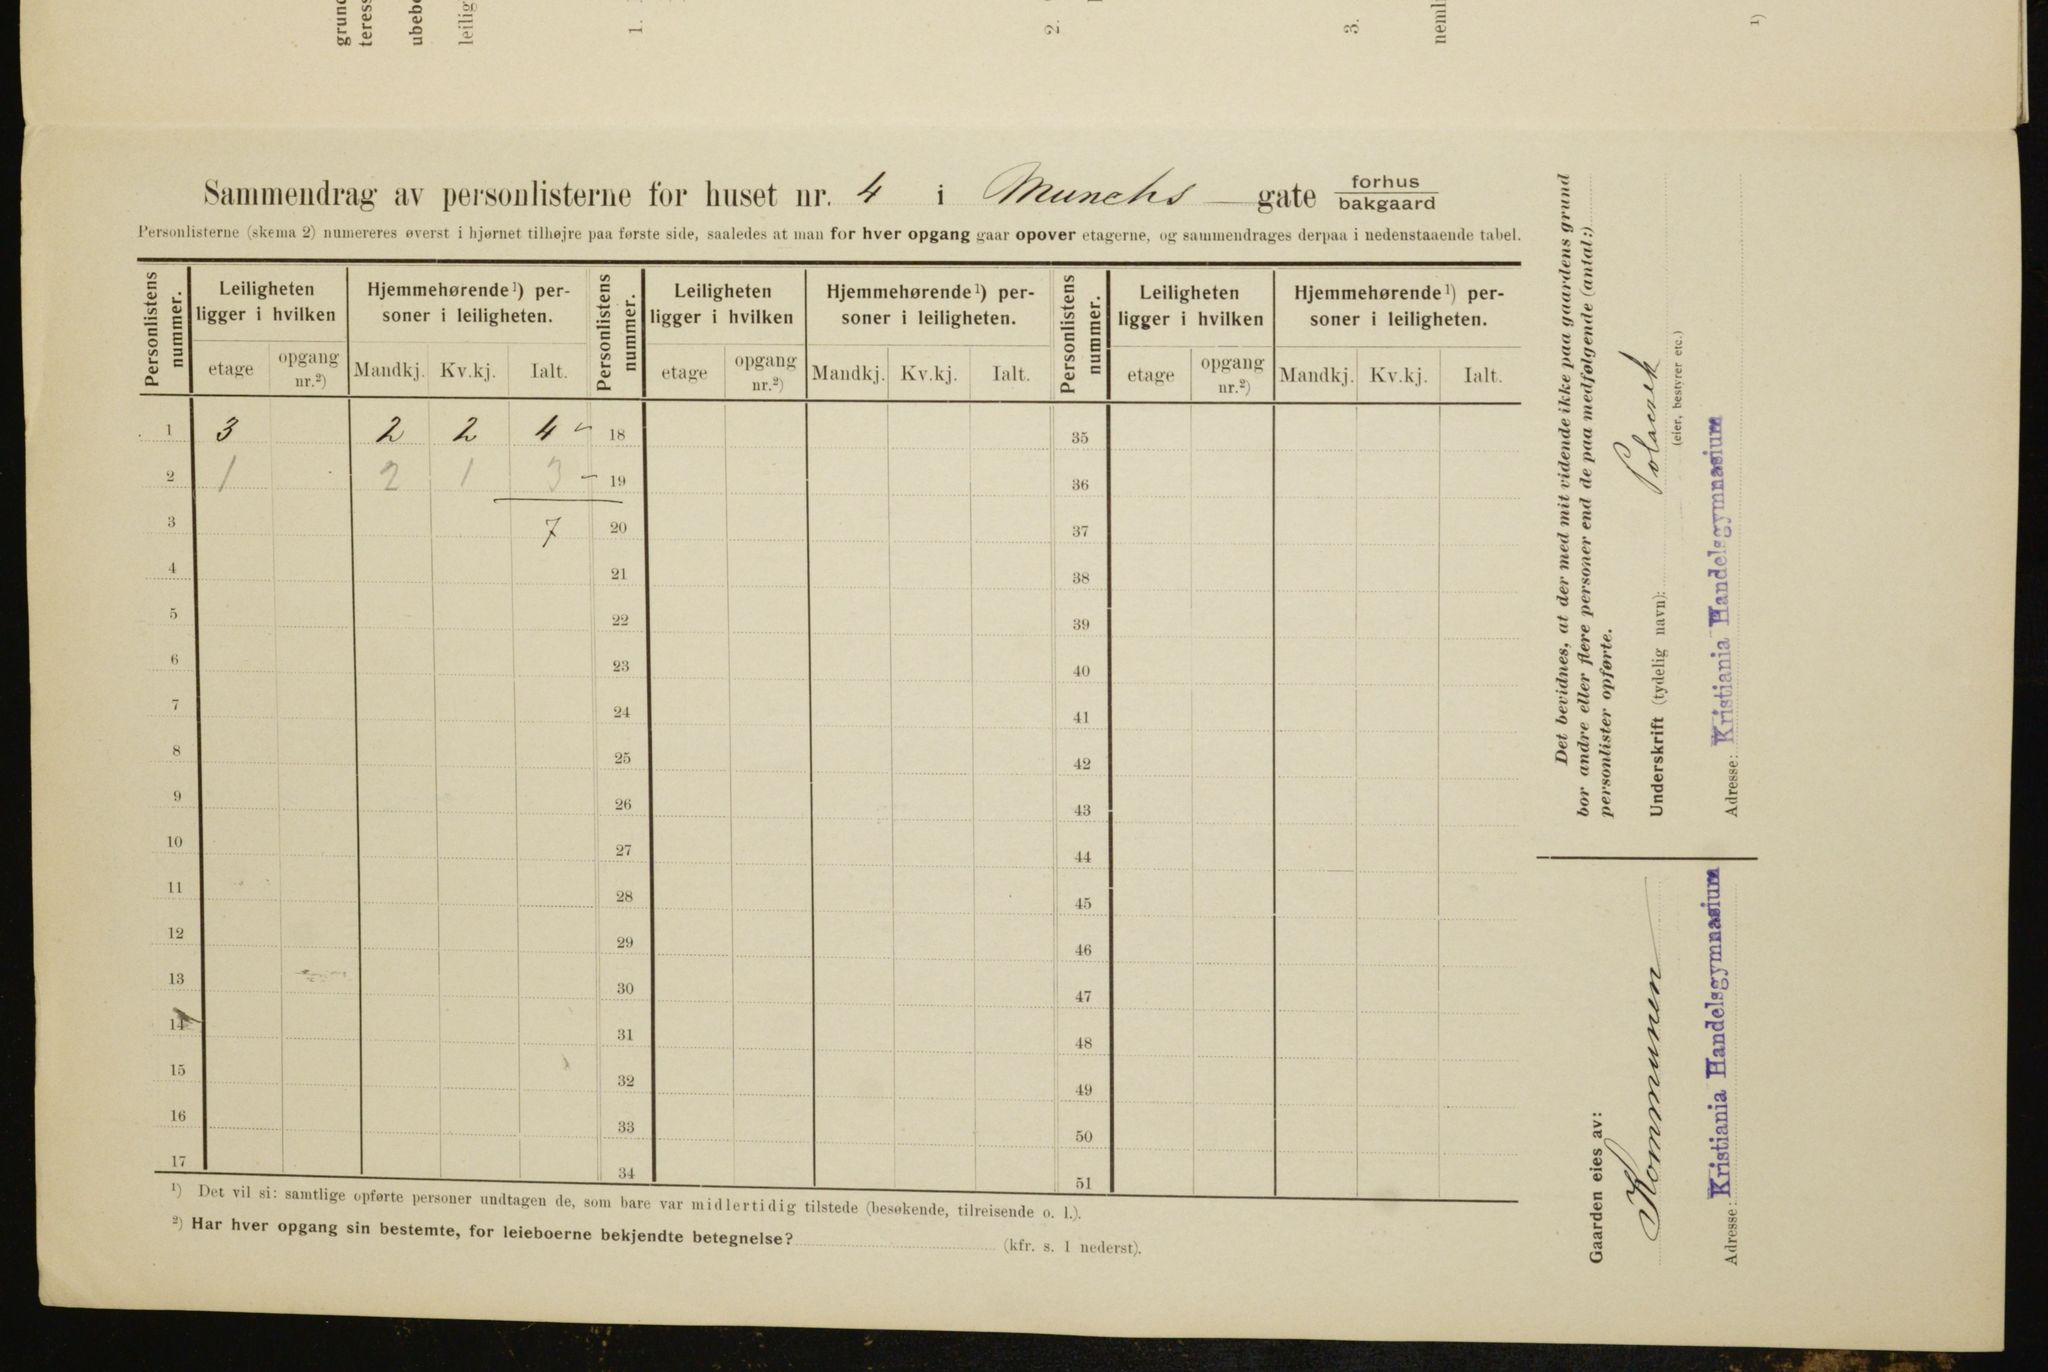 grund
teress
ubebo
leilig
1.
2.
3.
neml
1)
Sammendrag av personlisterne for huset nr. 4 i Munchs gate forhus
bakgaard
Personlisterne (skema 2) numereres øverst i hjørnet tilhøjre paa første side, saaledes at man for hver opgang gaar opover etagerne, og sammendrages derpaa i nedenstaaende tabel.
Personlistens nummer.
Leiligheten ligger i hvilken
Hjemmehørende 1) personer i leiligheten.
Personlistens nummer.
Leiligheten ligger i hvilken
Hjemmehørende 1) personer i leiligheten.
Personlistens nummer.
Leiligheten ligger i hvilken
Hjemmehørende 1) personer i leiligheten.
etage opgang nr.2) Mandkj. Kv.kj. Ialt. etage opgang nr.2) Mandkj. Kv.kj. Ialt. etage opgang nr.2) Mandkj. Kv.kj. Ialt.
1 3 2 2 4 - 18 35
2 1 2 1 3 - 19 36
3 7 20 37
4 21 38
5 22 39
6 23 40
7 24 41
8 25 42
9 26 43
10 27 44
11 28 45
12 29 46
13 30 47
14 31 48
15 32 49
16 33 50
17 34 51
1) Det vil si: samtlige opførte personer undtagen de, som bare var midlertidig tilstede (besøkende, tilreisende o. l.).
2) Har hver opgang sin bestemte, for leieboerne bekjendte betegnelse? (kfr. s. 1 nederst).
Det bevidnes, at der med mit vidende ikke paa gaardens grund
bor andre eller flere personer end de paa medfølgende (antal:)
personlister opførte.
Underskrift (tydelig navn):
(eier, bestyrer etc.)
Adresse: Kristiania Handelsgymnasium
Gaarden eies av:
Kommunen
Adresse: Kristiania Handelsgymnasium